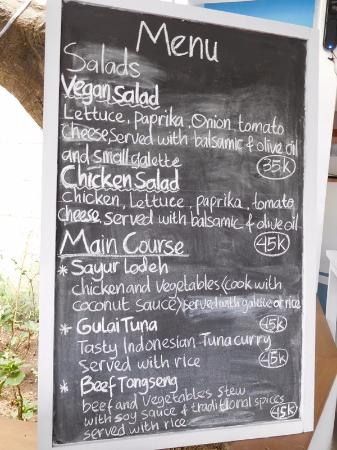 Menu
Salads
Vegan Salad
Lettuce, paprika, Onion, tomato
cheese, served with balsamic & olive oil
and small galette 35K
Chicken Salad
Chicken, Lettuce, paprika, tomato,
cheese, served with balsamic & olive oil
Main Course 45K
* Sayur Lodeh
chicken and vegetables (cook with
coconut sauce) served with galette or rice
* Gulai Tuna 45K
Tasty Indonesian Tuna curry
Served with rice 45K
* Beef Tongseng
beef and vegetables stew
with soy sauce & traditional spices
served with rice 45K